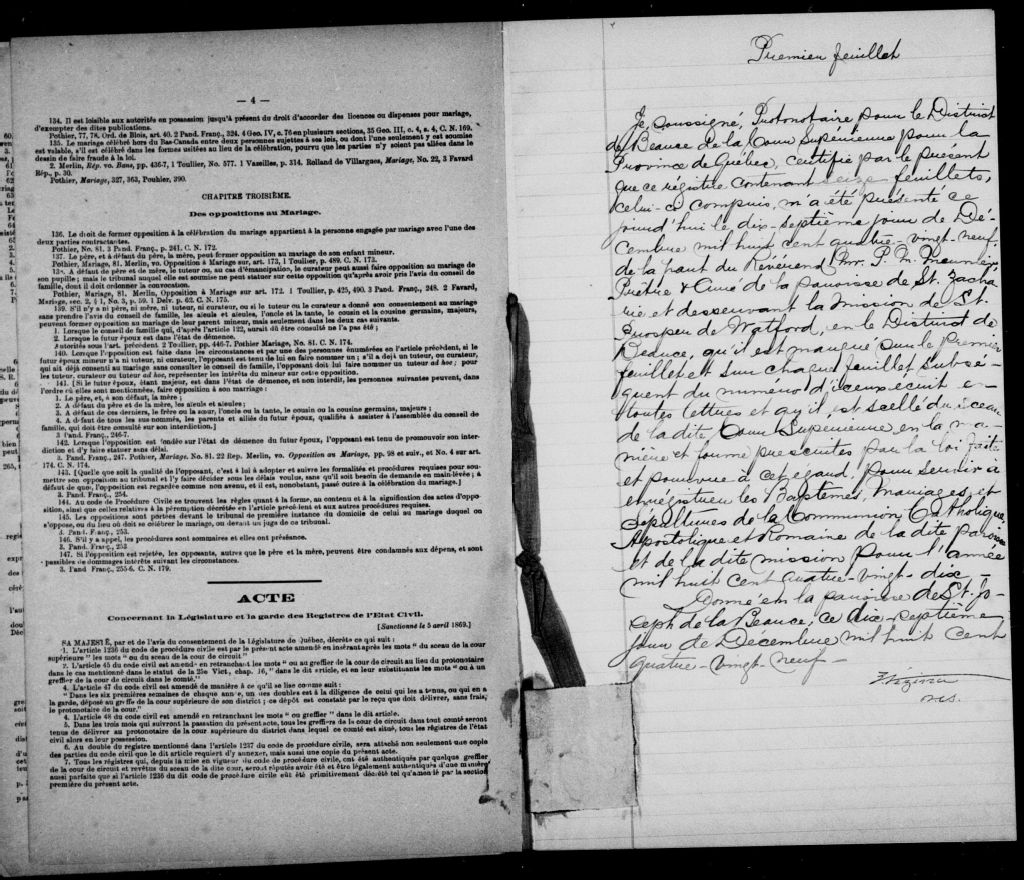 — 4 —
134. Il est loisible aux autorités en possession jusqu'à présent du droit d'accorder des licences ou dispenses pour mariage,
d'exempter des dites publications.
Pothier, 77, 78. Ord. de Blois, art. 40. 2 Pand. Franç., 324. 4 Geo. IV, c. 76 en plusieurs sections, 35 Geo. III, c. 4, s. 4, C. N. 169.
135. Le mariage célébré hors du Bas-Canada entre deux personnes sujettes à ses lois, ou dont l'une seulement y est soumise
est valable, s'il est célébré dans les formes usitées au lieu de la célébration, pourvu que les parties n'y soient pas allées dans le
dessin de faire fraude à la loi.
2. Merlin, Rép. vo. Bans, pp. 436-7, 1 Toulier, No. 577. 1 Vazilles, p. 314. Rolland de Villargues, Mariage, No. 22, 3 Favard
Rép., p. 30.
Pothier, Mariage, 327, 363, Pouhier, 390.
CHAPITRE TROISIÈME.
Des oppositions au Mariage.
136. Le droit de former opposition à la célébration du mariage appartient à la personne engagée par mariage avec l'une des
deux parties contractantes.
Pothier, No. 81, 3 Pand. Franç., p. 241. C. N. 172.
137. Le père, et à défaut du père, la mère, peut former opposition au mariage de son enfant mineur.
Pothier, Mariage, 81. Merlin, vo. Opposition à Mariage, sur art. 173, 1 Toullier, p. 489. C. N. 173.
138. A défaut de père et de mère, le tuteur ou, au cas d'émancipation, le curateur peut aussi faire opposition au mariage de
son pupille ; mais le tribunal auquel elle est soumise ne peut statuer sur cette opposition qu'après avoir pris l'avis du conseil de
famille, dont il doit ordonner la convocation.
Pothier, Mariage, 81. Merlin, Opposition à Mariage sur art. 172. 1 Toullier, p. 425, 490. 3 Pand. Franç., 248. 2 Favard,
Mariage, sec. 2, § 1, No. 3, p. 59. 1 Delv. p. 62. C. N. 175.
139. S'il n'y a ni père, ni mère, ni tuteur, ni curateur, ou si le tuteur ou le curateur a donné son consentement au mariage
sans prendre l'avis du conseil de famille, les aïeuls et aïeules, l'oncle et la tante, le cousin et la cousine germains, majeurs,
peuvent former opposition au mariage de leur parent mineur, mais seulement dans les deux cas suivants.
1. Lorsque le conseil de famille qui, d'après l'article 122, aurait dû être consulté ne l'a pas été ;
2. Lorsque le futur époux est dans l'état de démence.
Autorités sous l'art. précédent. 2 Toullier, pp. 446-7. Pothier Mariage, No. 81. C. N. 174.
140. Lorsque l'opposition est faite dans les circonstances et par une des personnes énumérées en l'article précédent, si le
futur époux mineur n'a ni tuteur, ni curateur, l'opposant est tenu de lui en faire nommer un ; s'il a déjà un tuteur, ou curateur,
qui ait déjà consenti au mariage sans consulter le conseil de famille, l'opposant doit lui faire nommer un tuteur ad hoc ; pour
les tuteur, curateur ou tuteur ad hoc, représenter les intérêts du mineur sur cette opposition.
141. [Si le futur époux, étant majeur, est dans l'état de démence, et non interdit, les personnes suivantes peuvent, dans
l'ordre où elles sont mentionnées, faire opposition à son mariage :
1. Le père, et, à son défaut, la mère ;
2. A défaut du père et de la mère, les aïeuls et aïeules ;
3. A défaut de ces derniers, le frère ou la sœur, l'oncle ou la tante, le cousin ou la cousine germains, majeurs ;
4. A défaut de tous les sus-nommés, les parents et alliés du futur époux, qualifiés à assister à l'assemblée du conseil de
famille, qui doit être consulté sur son interdiction.]
3 Pand. Franç., 246-7.
142. Lorsque opposition est fondée sur l'état de démence du futur époux, l'opposant est tenu de promouvoir son inter-
diction et d'y faire statuer sans délai.
3. Pand. Franç., 247. Pothier, Mariage, No. 81. 22 Rep. Merlin, vo. Opposition au Mariage, pp. 98 et suiv., et No. 4 sur art.
174. C. N. 174.
143. [Quelle que soit la qualité de l'opposant, c'est à lui à adopter et suivre les formalités et procédures requises pour sou-
mettre son opposition au tribunal et l'y faire décider sous les délais voulus, sans qu'il soit besoin de demande en main-lévée ; à
défaut de quoi, l'opposition est regardée comme non avenue, et il est, nonobstant, passé outre à la célébration du mariage.]
3. Pand. Franç., 254.
144. Au code de Procédure Civile se trouvent les règles quant à la forme, au contenu et à la signification des actes d'oppo-
sition, ainsi que celles relatives à la péremption décrétée en l'article précédent et aux autres procédures requises.
145. Les oppositions sont portées devant le tribunal de première instance du domicile de celui au mariage duquel on
s'oppose, ou du lieu où doit se célébrer le mariage, ou devant un juge de ce tribunal.
3. Pand. Franç., 253.
146. S'il y a appel, les procédures sont sommaires et elles ont préséance.
3. Pand. Franç., 253
147. Si l'opposition est rejetée, les opposants, autres que le père et la mère, peuvent être condamnés aux dépens, et sont
passibles de dommages intérêts suivant les circonstances.
3. Pand. Franç., 255-6. C. N. 179.
ACTE
Concernant la Législature et la garde des Registres de l'Etat Civil.
[Sanctionné le 5 avril 1869.]
SA MAJESTÉ, par et de l'avis du consentement de la Législature de Québec, décrète ce qui suit :
1. L'article 1236 du code de procédure civile est par le présent acte amendé en insérant après les mots " du sceau de la cour
supérieure " les mots " ou du sceau de la cour de circuit "
2. L'article 45 du code civil est amendé en retranchant les mots " ou au greffier de la cour de circuit au lieu du protonotaire
dans le cas mentionné dans le statut de la 25e Vict., chap. 16, " dans le dit article, et en leur substituant les mots " ou à un
greffier de la cour de circuit dans le comté."
4. L'article 47 du code civil est amendé de manière à ce qu'il se lise comme suit :
" Dans les six premières semaines de chaque année, un des doubles est à la diligence de celui qui les a tenus, ou qui en a
la garde, déposé au greffe de la cour supérieure de son district ; ce dépôt est constaté par le reçu que doit délivrer, sans frais,
le protonotaire de la cour."
4. L'article 48 du code civil est amendé en retranchant les mots " ou greffier " dans le dit article.
5. Dans les trois mois qui suivront la passation du présent acte, tous les greffiers de la cour de circuit dans tout comté seront
tenus de délivrer au protonotaire de la cour supérieure du district dans lequel ce comté est situé, tous les registres de l'état
civil alors en leur possession.
6. Au double du registre mentionné dans l'article 1237 du code de procédure civile, sera attaché non seulement une copie
des parties du code civil que le dit article requiert d'y annexer, mais aussi une copie du présent acte.
7. Tous les registres qui, depuis la mise en vigueur du code de procédure civile, ont été authentiqués par quelque greffier
de la cour de circuit et revêtus du sceau de la dite cour, seront réputés avoir été et être légalement authentiqués d'une manière
aussi parfaite que si l'article 1236 du dit code de procédure civile eût été primitivement décrété tel qu'amendé par la section
première du présent acte.
Premier feuillet
Je, soussigné, Protonotaire pour le District
de Beauce de la Cour Supérieure pour la
Province de Québec, certifie par le présent
que ce régistre contenant seize feuillets,
celui-ci compris, m'a été présenté ce
jourd'hui le dix-septième jour de Dé-
cembre mil huit cent quatre-vingt-neuf,
de la part du Révérend Mr. P. N.
Prêtre & Curé de la paroisse de St. Zacha
rie et desservant la Mission de St.
Prosper de Watford, en le District de
Beauce, qu'il est marqué sur le premier
feuillet et sur chaque feuillet subsé-
quent du numéro d'iceux écrit en
toutes lettres et qu'il est scellé du sceau
de la dite Cour Supérieure en la ma-
nière et forme prescrites par la loi faite
et pourvue à cet égard, pour servir à
enrégistrer les Baptêmes, Mariages et
Sépultures de la Communion Catholique
Apostolique et Romaine de la dite paroisse
et de la dite mission pour l'année
mil huit cent quatre-vingt-dix —
Donné en la paroisse de St. Jo-
seph de la Beauce, ce dix-septième
jour de Décembre mil huit cent
quatre-vingt-neuf —